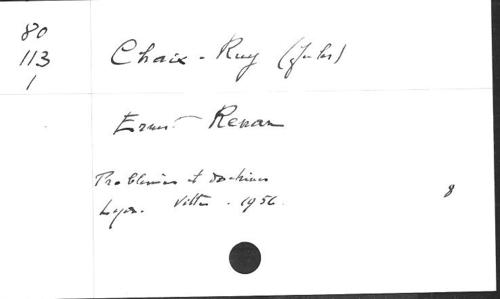 80
113
1
Chaix-Ruy (Jules)
Ernest Renan
Problèmes et doctrines
Lyon. Vitte. 1956.
8